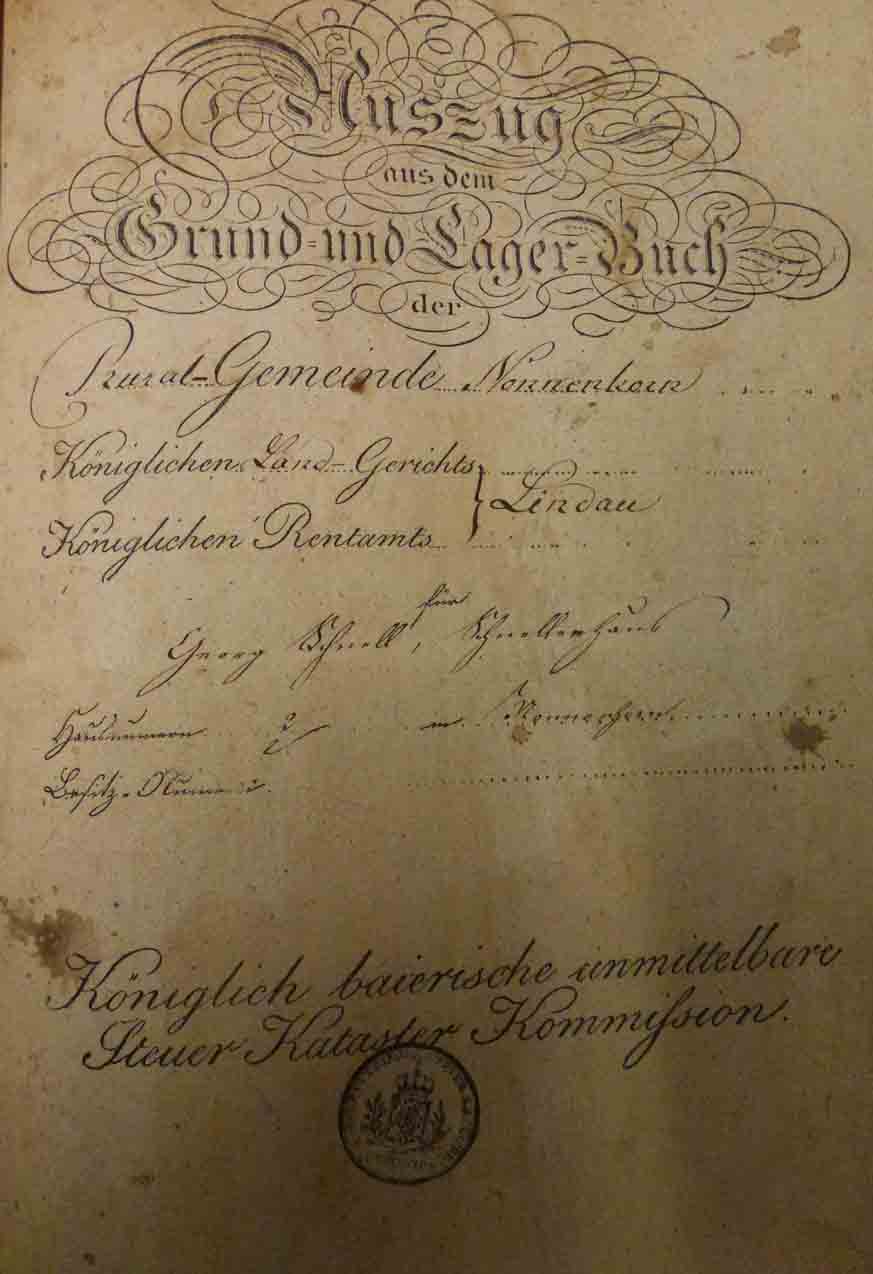 Auszug
aus dem
Grund- und Lager-Buch
der
Rural-Gemeinde Nonnenhorn
Königlichen Land-Gerichts
Lindau
Königlichen Rentamts
für
Georg Schnell, Schnellenhaus
Hausnumern 2 in Nonnenhorn
Besitz-Numer 2.
Königlich baierische unmittelbare
Steuer Kataster Kommission.